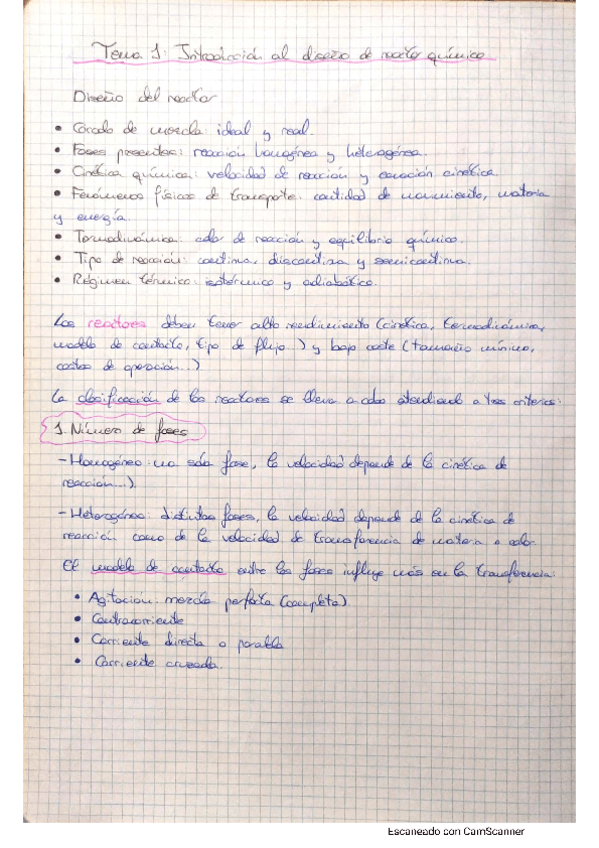 Tema 1: Introducción al diseño de reactor químico
Diseño del reactor
• Grado de mezcla: ideal y real.
• Fases presentes: reacción homogénea y heterogénea.
• Cinética química: velocidad de reacción y ecuación cinética.
• Fenómenos físicos de transporte: cantidad de movimiento, materia
y energía.
• Termodinámica: calor de reacción y equilibrio químico.
• Tipo de reacción: continua, discontinua y semicontinua.
• Régimen térmico: isotérmico y adiabático.
Los reactores deben tener alto rendimiento (cinética, termodinámica,
modelo de contacto, tipo de flujo...) y bajo coste (tamaño mínimo,
costes de operación...)
La clasificación de los reactores se lleva a cabo atendiendo a tres criterios:
1. Número de fases
- Homogéneo: una sola fase, la velocidad depende de la cinética de
reacción...).
- Heterogéneo: distintas fases, la velocidad depende de la cinética de
reacción como de la velocidad de transferencia de materia o calor.
El modelo de contacto entre las fases influye más en la transferencia:
• Agitación: mezcla perfecta (completa)
• Contracorriente
• Corriente directa o paralela
• Corriente cruzada.
Escaneado con CamScanner